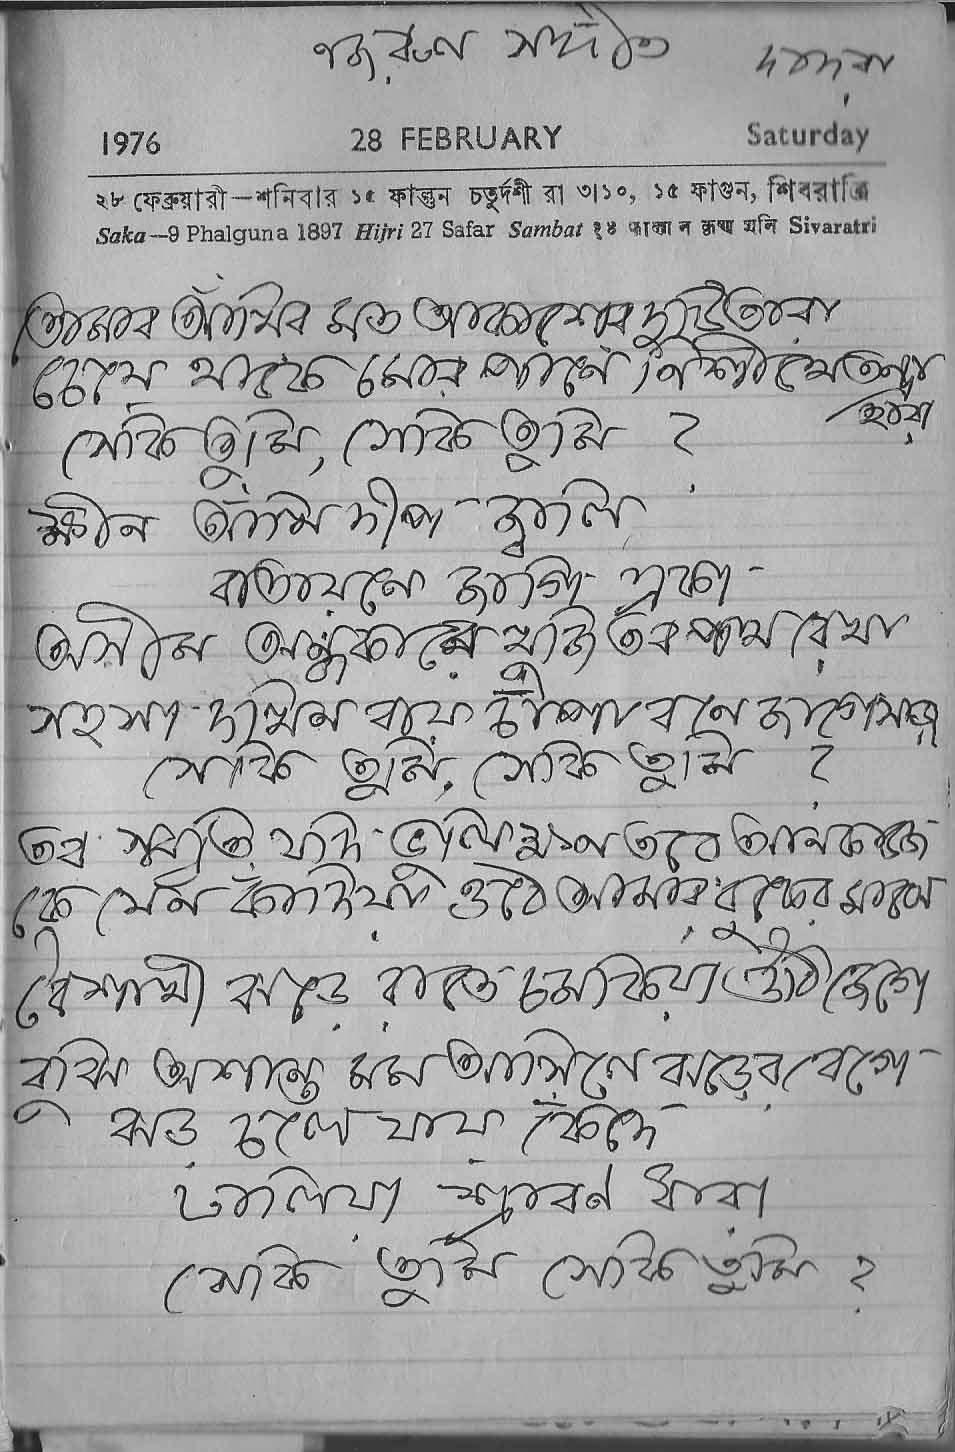 নজরুল সঙ্গীত
দাদরা
1976 28 FEBRUARY Saturday
২৮ ফেব্রুয়ারী—শনিবার ১৫ ফাল্গুন চতুর্দশী রা ৩।১০, ১৫ ফাগুন, শিবরাত্রি
Saka—9 Phalguna 1897 Hijri 27 Safar Sambat १४ फाल्गुन कृष्ण शनि Sivaratri
আমার আঁখির মত আকাশের দুটি তারা
চেয়ে থাকে মোর পানে নিশীথে তন্দ্রা
হারা
সেকি তুমি, সেকি তুমি ?
ক্ষীন আঁখি দীপ জ্বালি
বাতায়নে জাগি একা
অসীম অন্ধকারে খুঁজি তব পথ রেখা
সহসা দখিন বায় চাঁপা বনে জাগে সাড়া
সেকি তুমি, সেকি তুমি ?
তব স্মৃতি যদি ভুলি ক্ষণ তরে আন কাজে
কে যেন কাঁদিয়া ওঠে আমার বুকের মাঝে
বৈশাখী ঝড়ে রাতে চমকিয়া উঠি জেগে
বুঝি অশান্ত মম আসিলে ঝড়ের বেগে
ঝড় চলে যায় কেঁদে
ঢালিয়া শ্রাবণ ধারা
সেকি তুমি সেকি তুমি ?